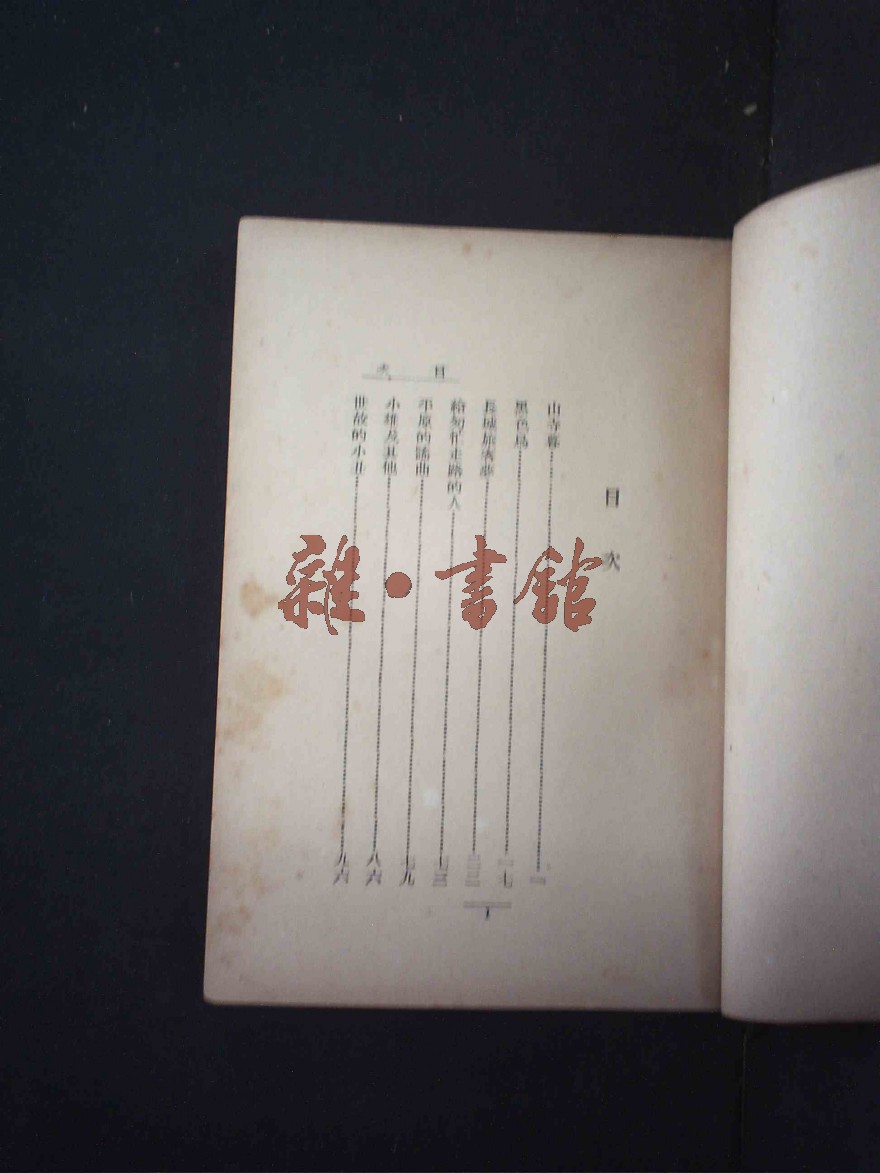 目次
目次
山寺暮
黑色鳥……一七
長城旅客夢
給匆忙走路的人……七三
平原的歌曲……七九
小雄及其他……八六
世故的小丑……九六
雜·書館